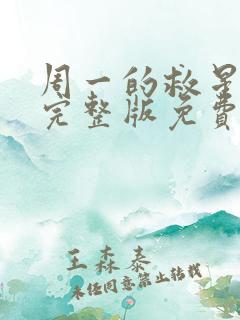 周一的救星
完整版免費
王森泰
未经同意禁止转载